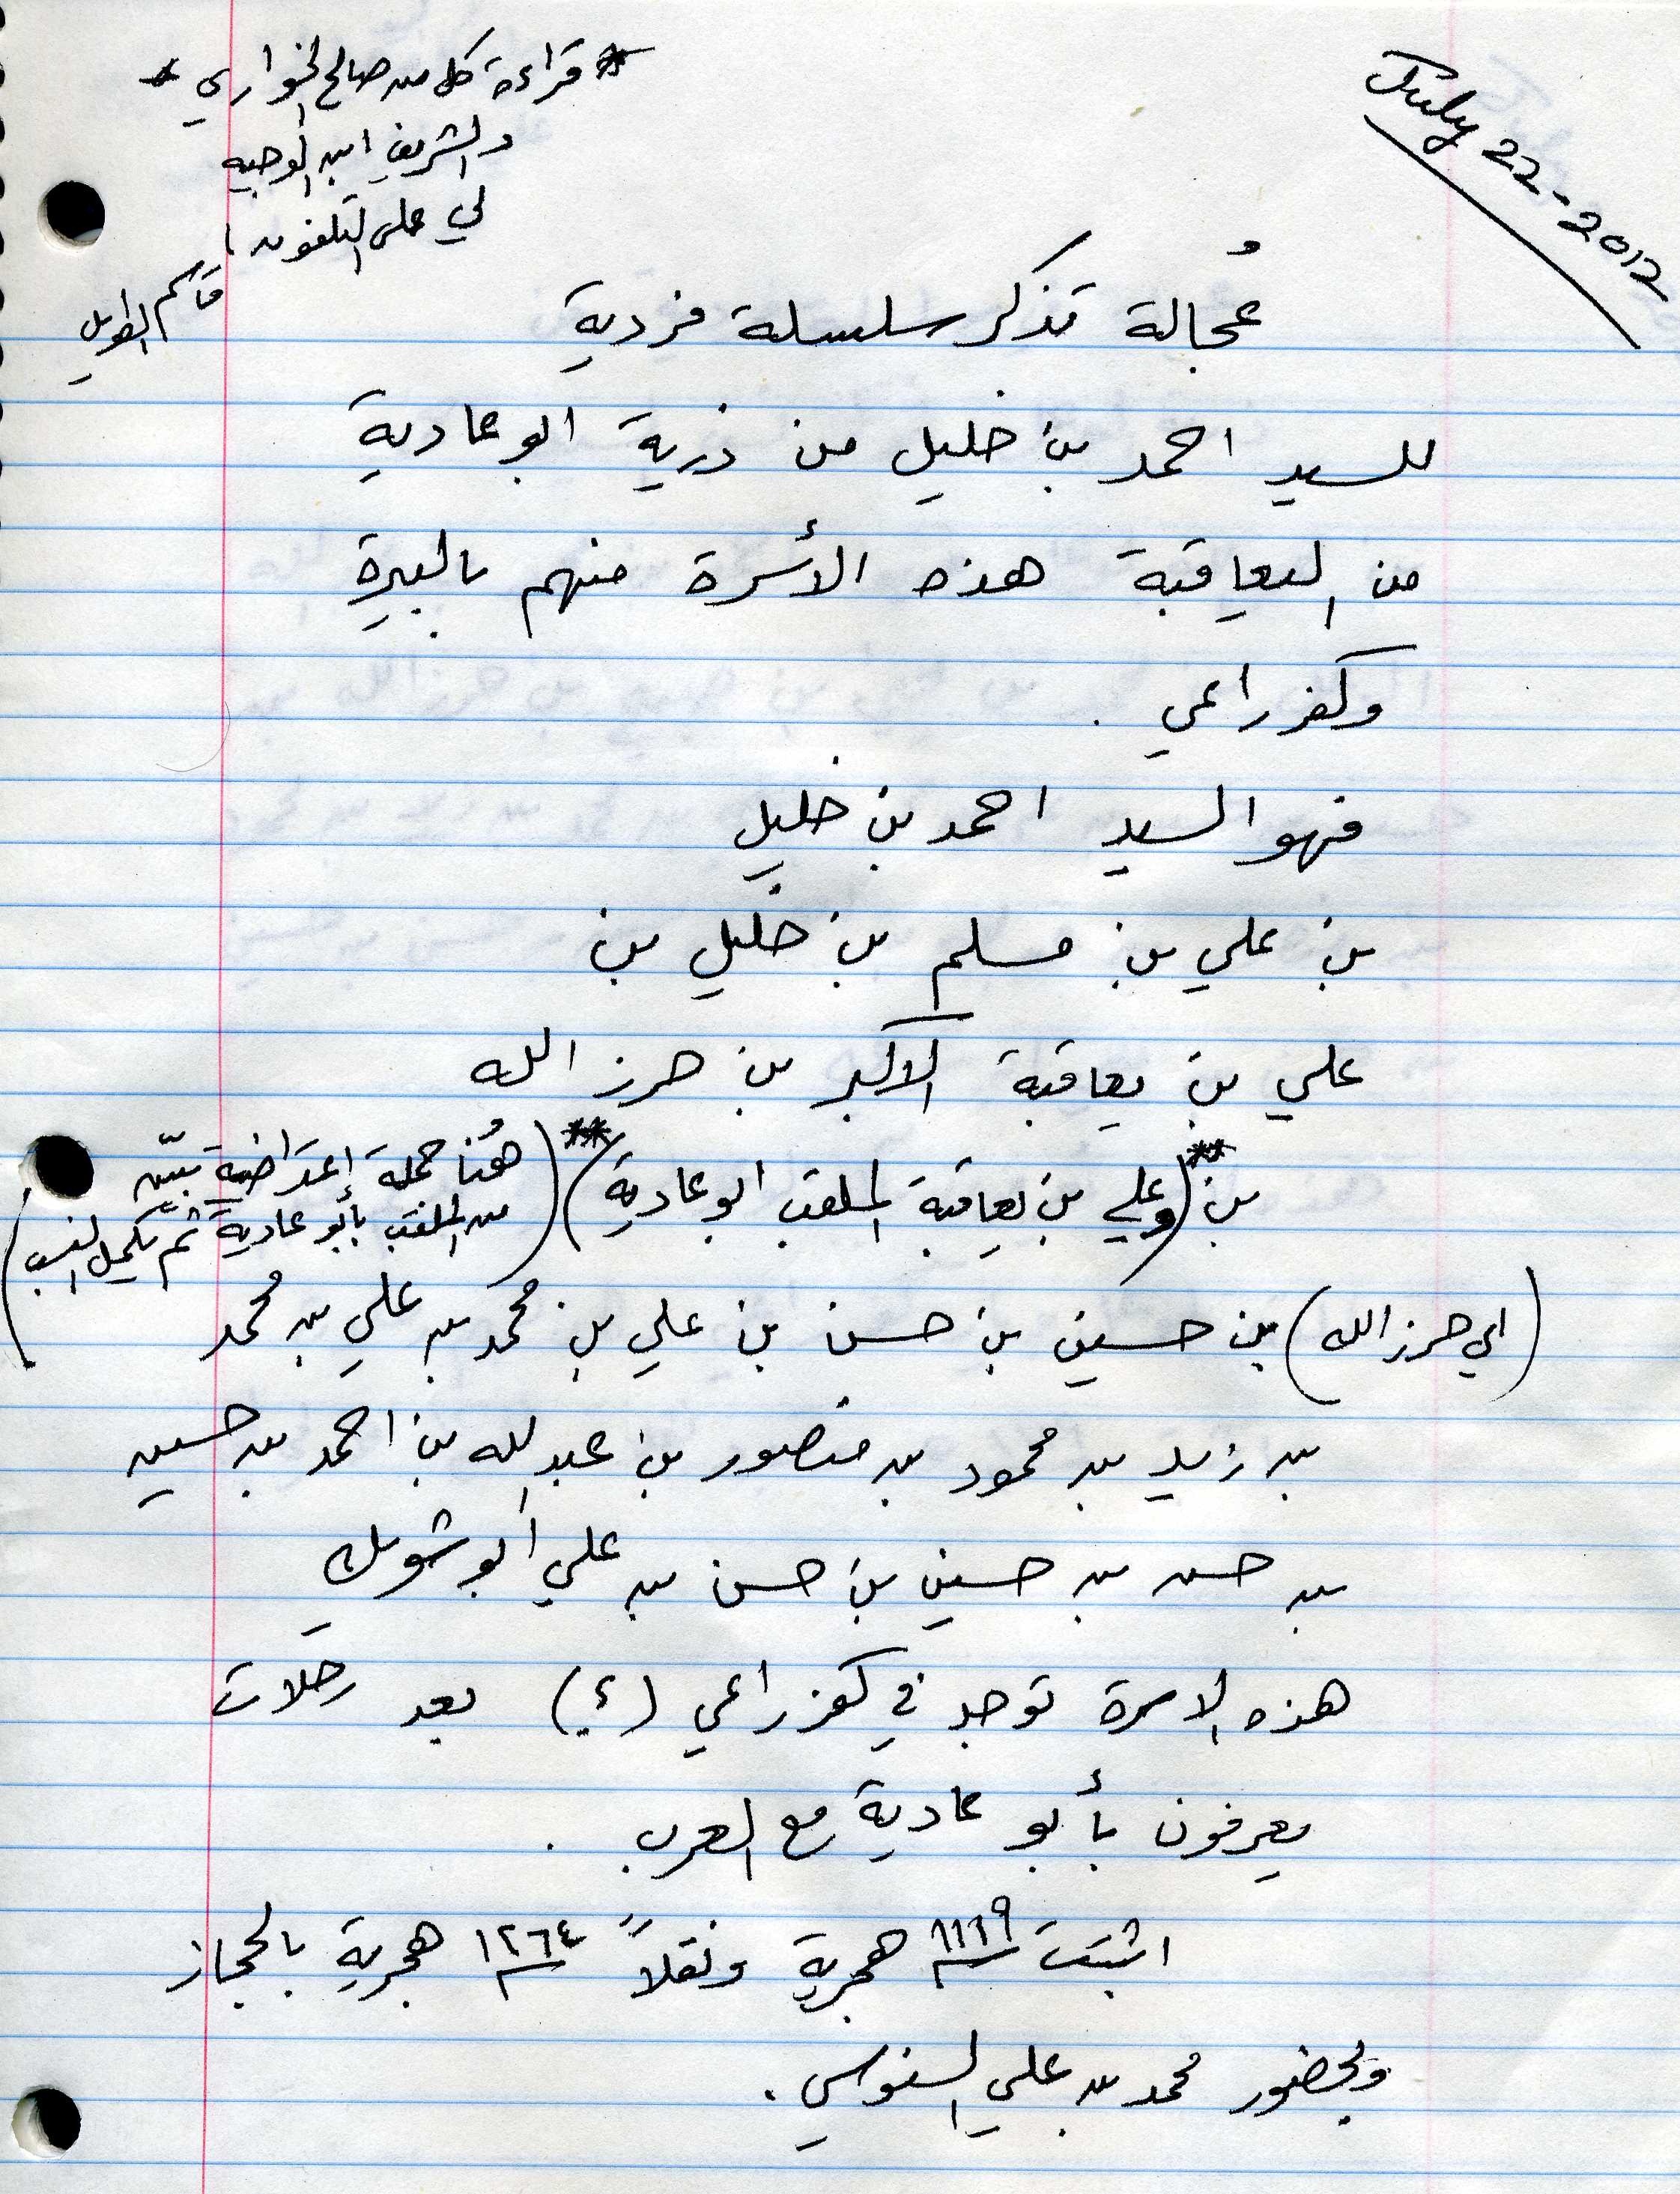 July 22-2012
* قراءة كل من صالح الخواري *
والشريف ابن الوجيه
لي على التلفون،
قاسم الطويل
عُجالة تذكر سلسلة فردية
للسيد احمد بن خليل من ذرية ابو عادية
من اليعاقبة هذه الأسرة منهم بالبيرة
وكفر راعي .
فهو السيد احمد بن خليل
بن علي بن مسلم بن خليل بن
علي بن يعاقبة الاكبر بن حرز الله
بن **(وعلي بن يعاقبة الملقب ابو عادية)** (هُنا جملة إعتراضية تبيّن
من الملقب بأبو عادية ثم تكمل النسب)
(اي حرز الله) بن حسين بن حسن بن علي بن محمد بن علي بن محمد
بن زيد بن محمود بن منصور بن عبد الله بن احمد بن حسين
بن حسن بن حسين بن حسن بن علي ابو شويك
هذه الاسرة توجد في كفر راعي (ئ) بعد رحلات
يعرفون بأبو عادية مع العرب .
اثبتت ١١١٩ هجرية ونقلاً ١٢٦٤ هجرية بالحجاز
وبحضور محمد بن علي السنوسي .